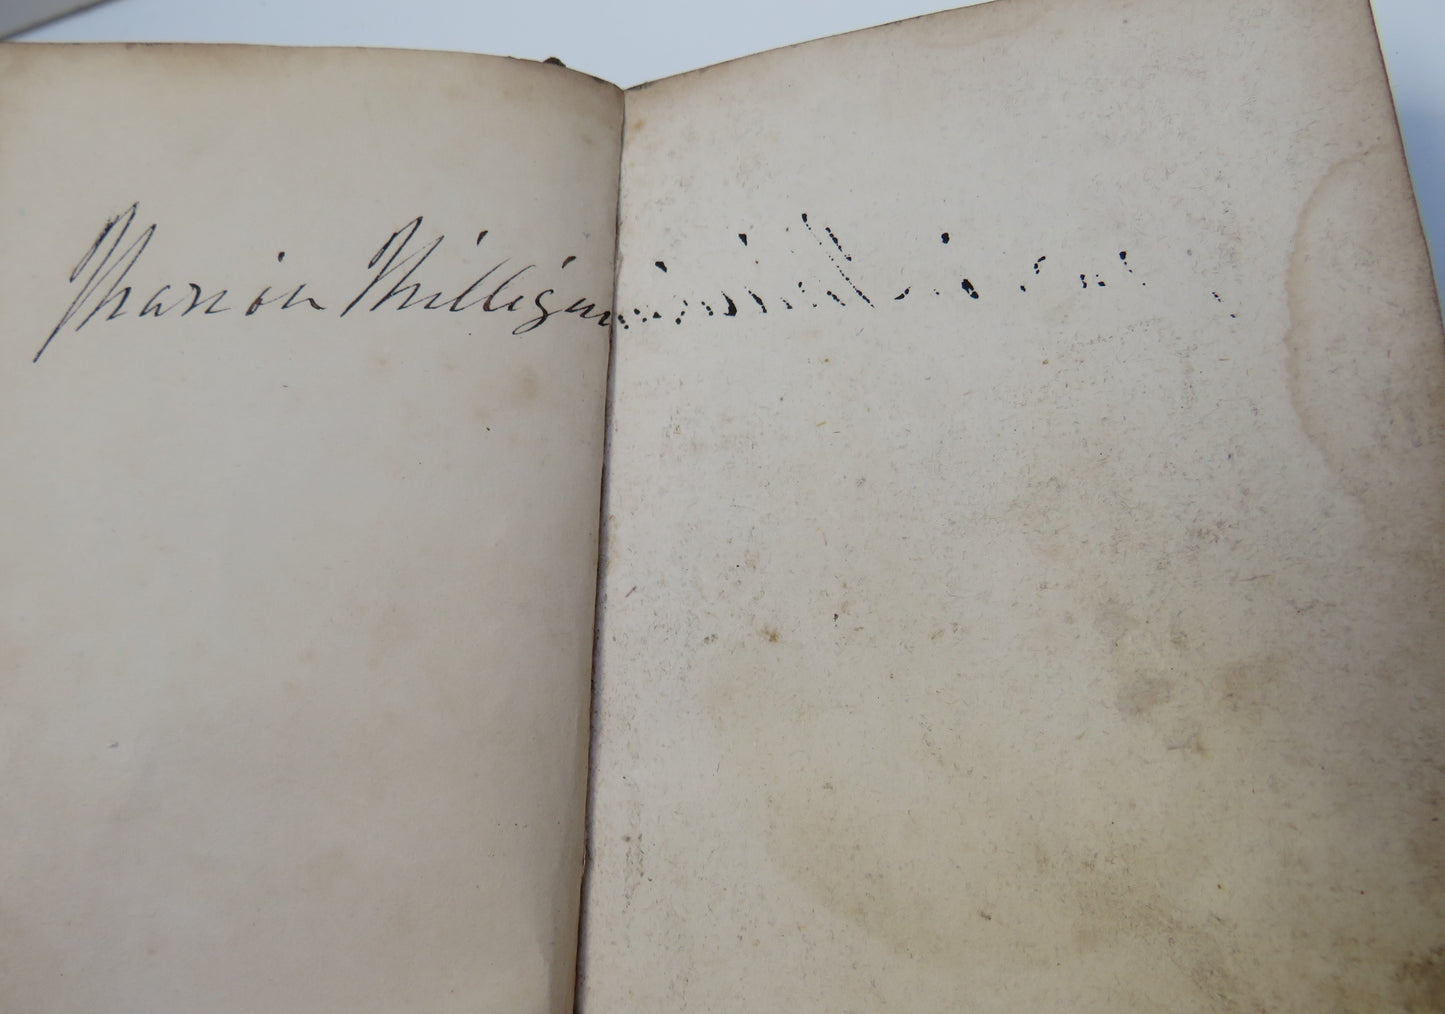 Marion Milligan